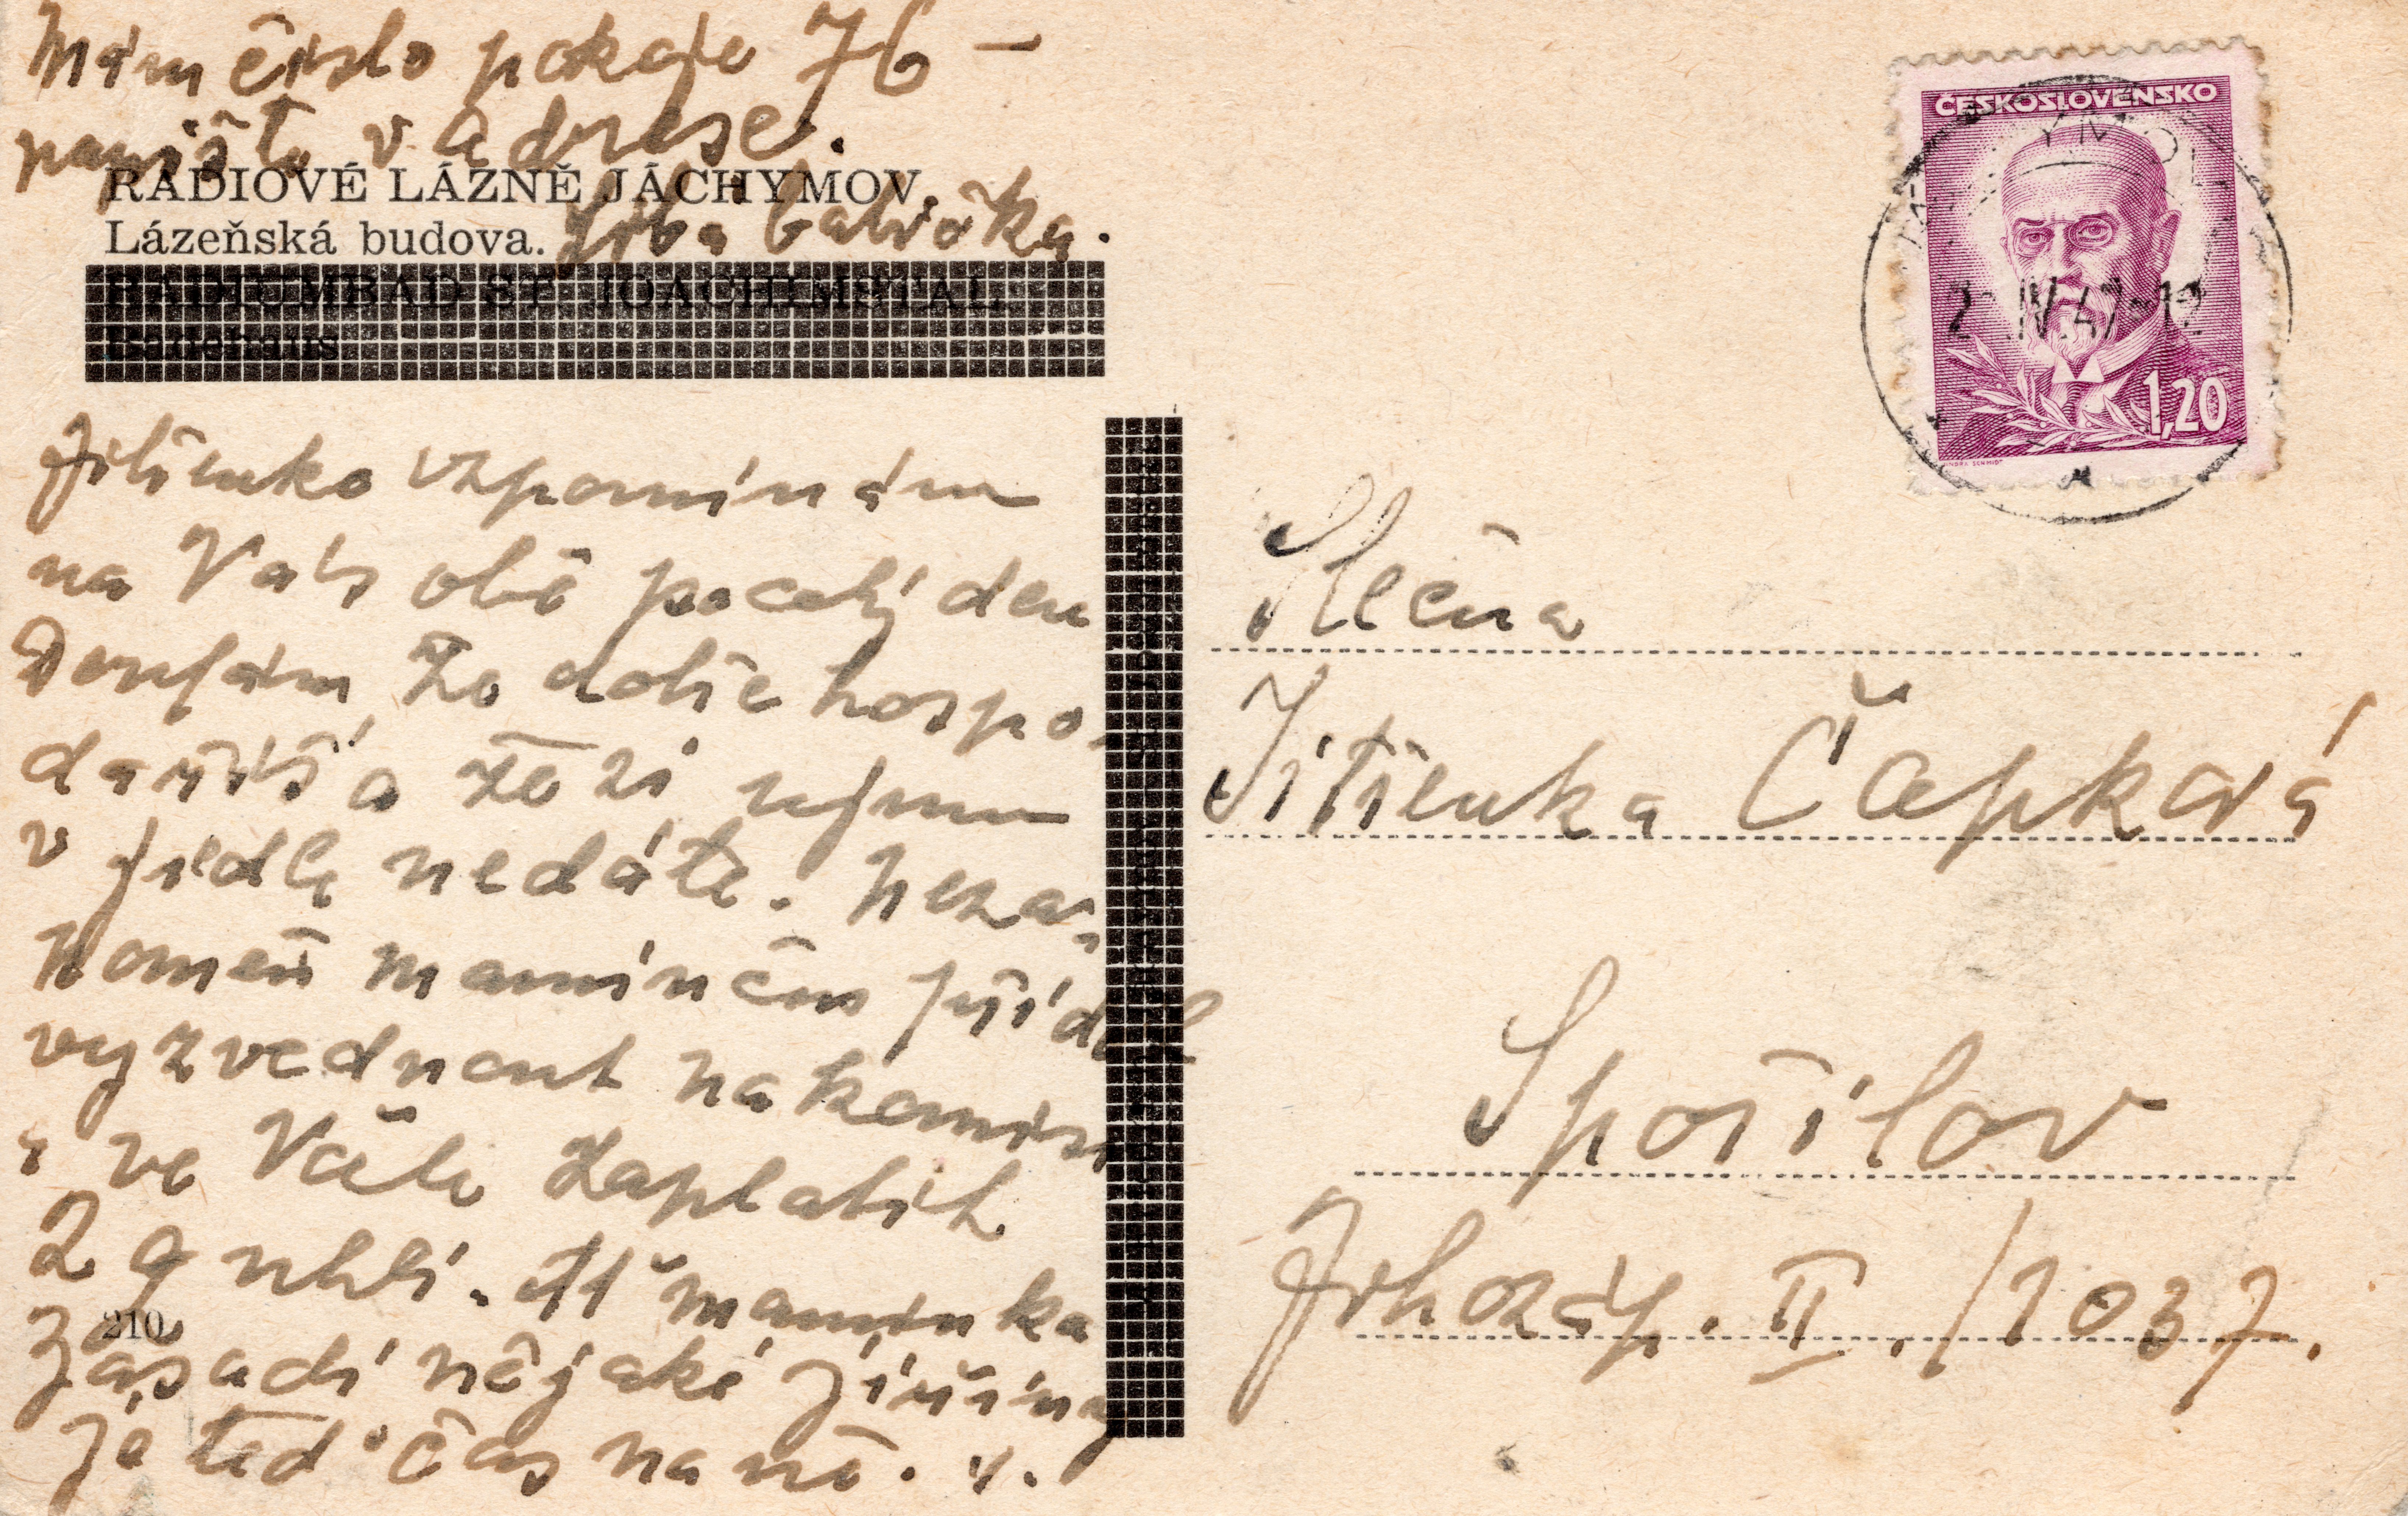 Mám číslo pokoje 76 -
pamište v adrese.
RADIOVÉ LÁZNĚ JÁCHYMOV.
Lázeňská budova.
babička.
RADIUMBAD ST. JOACHIMSTAL
Badehaus
Jitřenko vzpomínám
na Vás obě po celý den
Doufám, že dobře hospo-
daříš a že si ujmu
v jídle nedáte. Neza-
pomeň mamince příděl
vyzvednout na komisi
a ve Včele zaplatit
2 q uhlí. Ať maminka
210
zasadí nějaké jiřiny
je teď čas na ně.
ČESKOSLOVENSKO
1,20
JINDRA SCHMIDT
IV. 47-12
Slečna
Jitřenka Čapková
Spořilov
Jihozáp. II. / 1037.